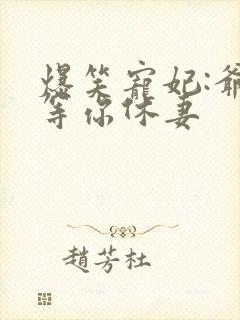 爆笑寵妃:爺
等你休妻
趙芳杜